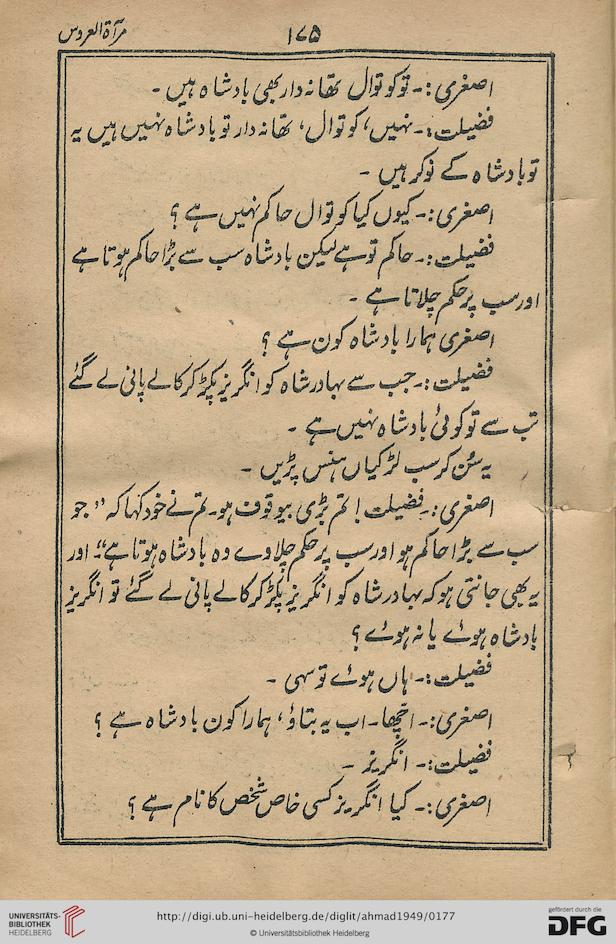 مرآۃ العروس
۱۷۵
اصغری:۔ تو کوتوال تھانہ دار بھی بادشاہ ہیں۔
فضیلت:۔ نہیں، کوتوال، تھانہ دار تو بادشاہ نہیں ہیں یہ
تو بادشاہ کے نوکر ہیں۔
اصغری:۔ کیوں کیا کوتوال حاکم نہیں ہے؟
فضیلت:۔ حاکم تو ہے لیکن بادشاہ سب سے بڑا حاکم ہوتا ہے
اور سب پر حکم چلاتا ہے۔
اصغری ہمارا بادشاہ کون ہے؟
فضیلت:۔ جب سے بہادر شاہ کو انگریز پکڑ کر کالے پانی لے گئے
تب سے تو کوئی بادشاہ نہیں ہے۔
یہ سُن کر سب لڑکیاں ہنس پڑیں۔
اصغری:۔ فضیلت! تم بڑی بیوقوف ہو۔ تم نے خود کہا کہ "جو
سب سے بڑا حاکم ہو اور سب پر حکم چلاوے وہ بادشاہ ہوتا ہے"۔ اور
یہ بھی جانتی ہو کہ بہادر شاہ کو انگریز پکڑ کر کالے پانی لے گئے تو انگریز
بادشاہ ہوئے یا نہ ہوئے؟
فضیلت:۔ ہاں ہوئے تو سہی۔
اصغری:۔ اچھا۔ اب یہ بتاؤ، ہمارا کون بادشاہ ہے؟
فضیلت:۔ انگریز۔
اصغری:۔ کیا انگریز کسی خاص شخص کا نام ہے؟
UNIVERSITÄTS-
BIBLIOTHEK
HEIDELBERG
http://digi.ub.uni-heidelberg.de/diglit/ahmad1949/0177
© Universitätsbibliothek Heidelberg
gefördert durch die
DFG